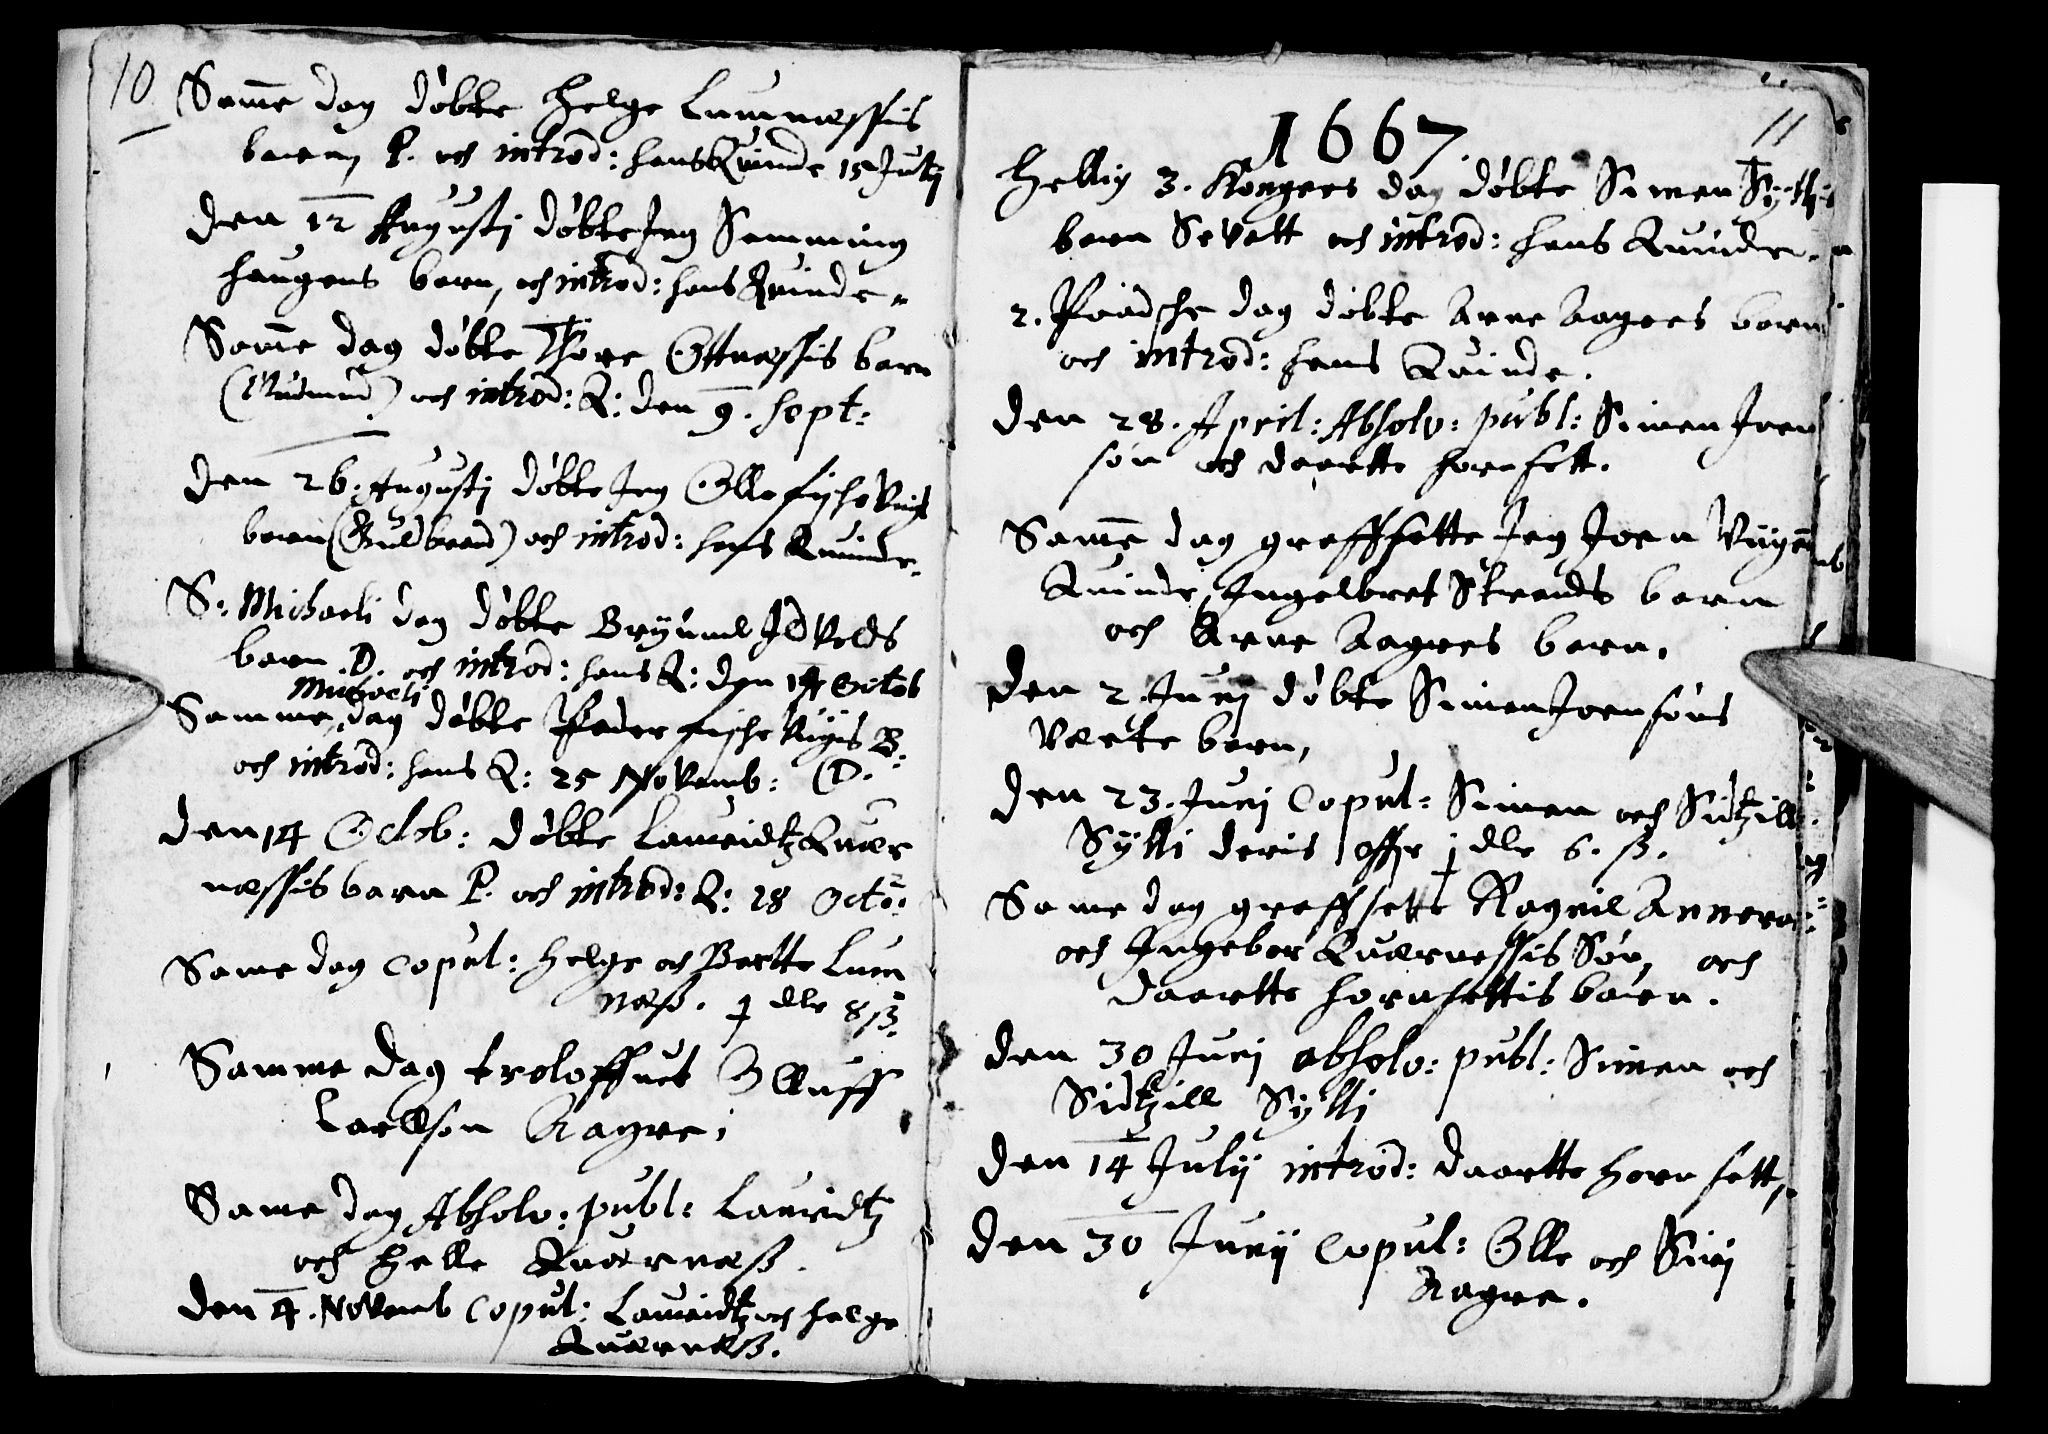 10
Same dag döbte Helge Lumnæssis
barn P. och introd: hans Quinde 15 Julij
Den 12 Augustj döbte Jeg Semming
haugens barn, och introd: hans Quinde.
Same dag döbte Thore Ottnæssis barn
(Amund) och introd: Q: den 9. Sept:
Den 26. Augustj döbte Jeg Olle
barn (Guldbrand) och introd: hans Quinde.
S: Michaeli dag döbte Brynnil Idvolds
barn .D. och introd: hans Q: den 14 Octob
Samme Michaeli dag döbte Peder fische B:
och introd: hans Q: 25 Novemb: (D.
Den 14 Octob: döbte Lauridtz Quer
næssis barn P. och introd: Q: 28 Octo:
Same dag copul: Helge och Bertte Lum
næss. j dlr 8 ß.
Samme dag troloffuet Olluff
Larssön Aagre;
Same dag Absolv: publ: Lauridtz
och Helle Querness.
Den 4. Novemb copul: Lauridtz och Helge
Querness.
11
1667.
Hellig 3. Kongers dag döbte Simen Syltis
barn Sevatt och introd: hans Quinde.
2. Paadsche dag döbte Arne Aagres barn
och introd: hans Quinde.
Den 28. April: Absolv: publ: Simen Joen
sön och Daarette Hornsett.
Same dag grafffsette Jeg Joen
Quinde, Ingelbret Strands barn
och Arne Aagres barn.
Den 2 Junj döbte Simen Joensöns
barn,
Den 23. Junj Copul: Simen och Sidtzill
Sylti deris offer j dlr 6. ß.
Same dag graffsette Ragnil
och Ingebor Quernessis Sön, och
Daarette Hornsettis barn.
Den 30 Junj absolv: publ: Simen och
Sidtzill Syltj
Den 14 Julij introd: Daarette Hornsett,
Den 30 Junij Copul: Olle och Sirj
Aagre.